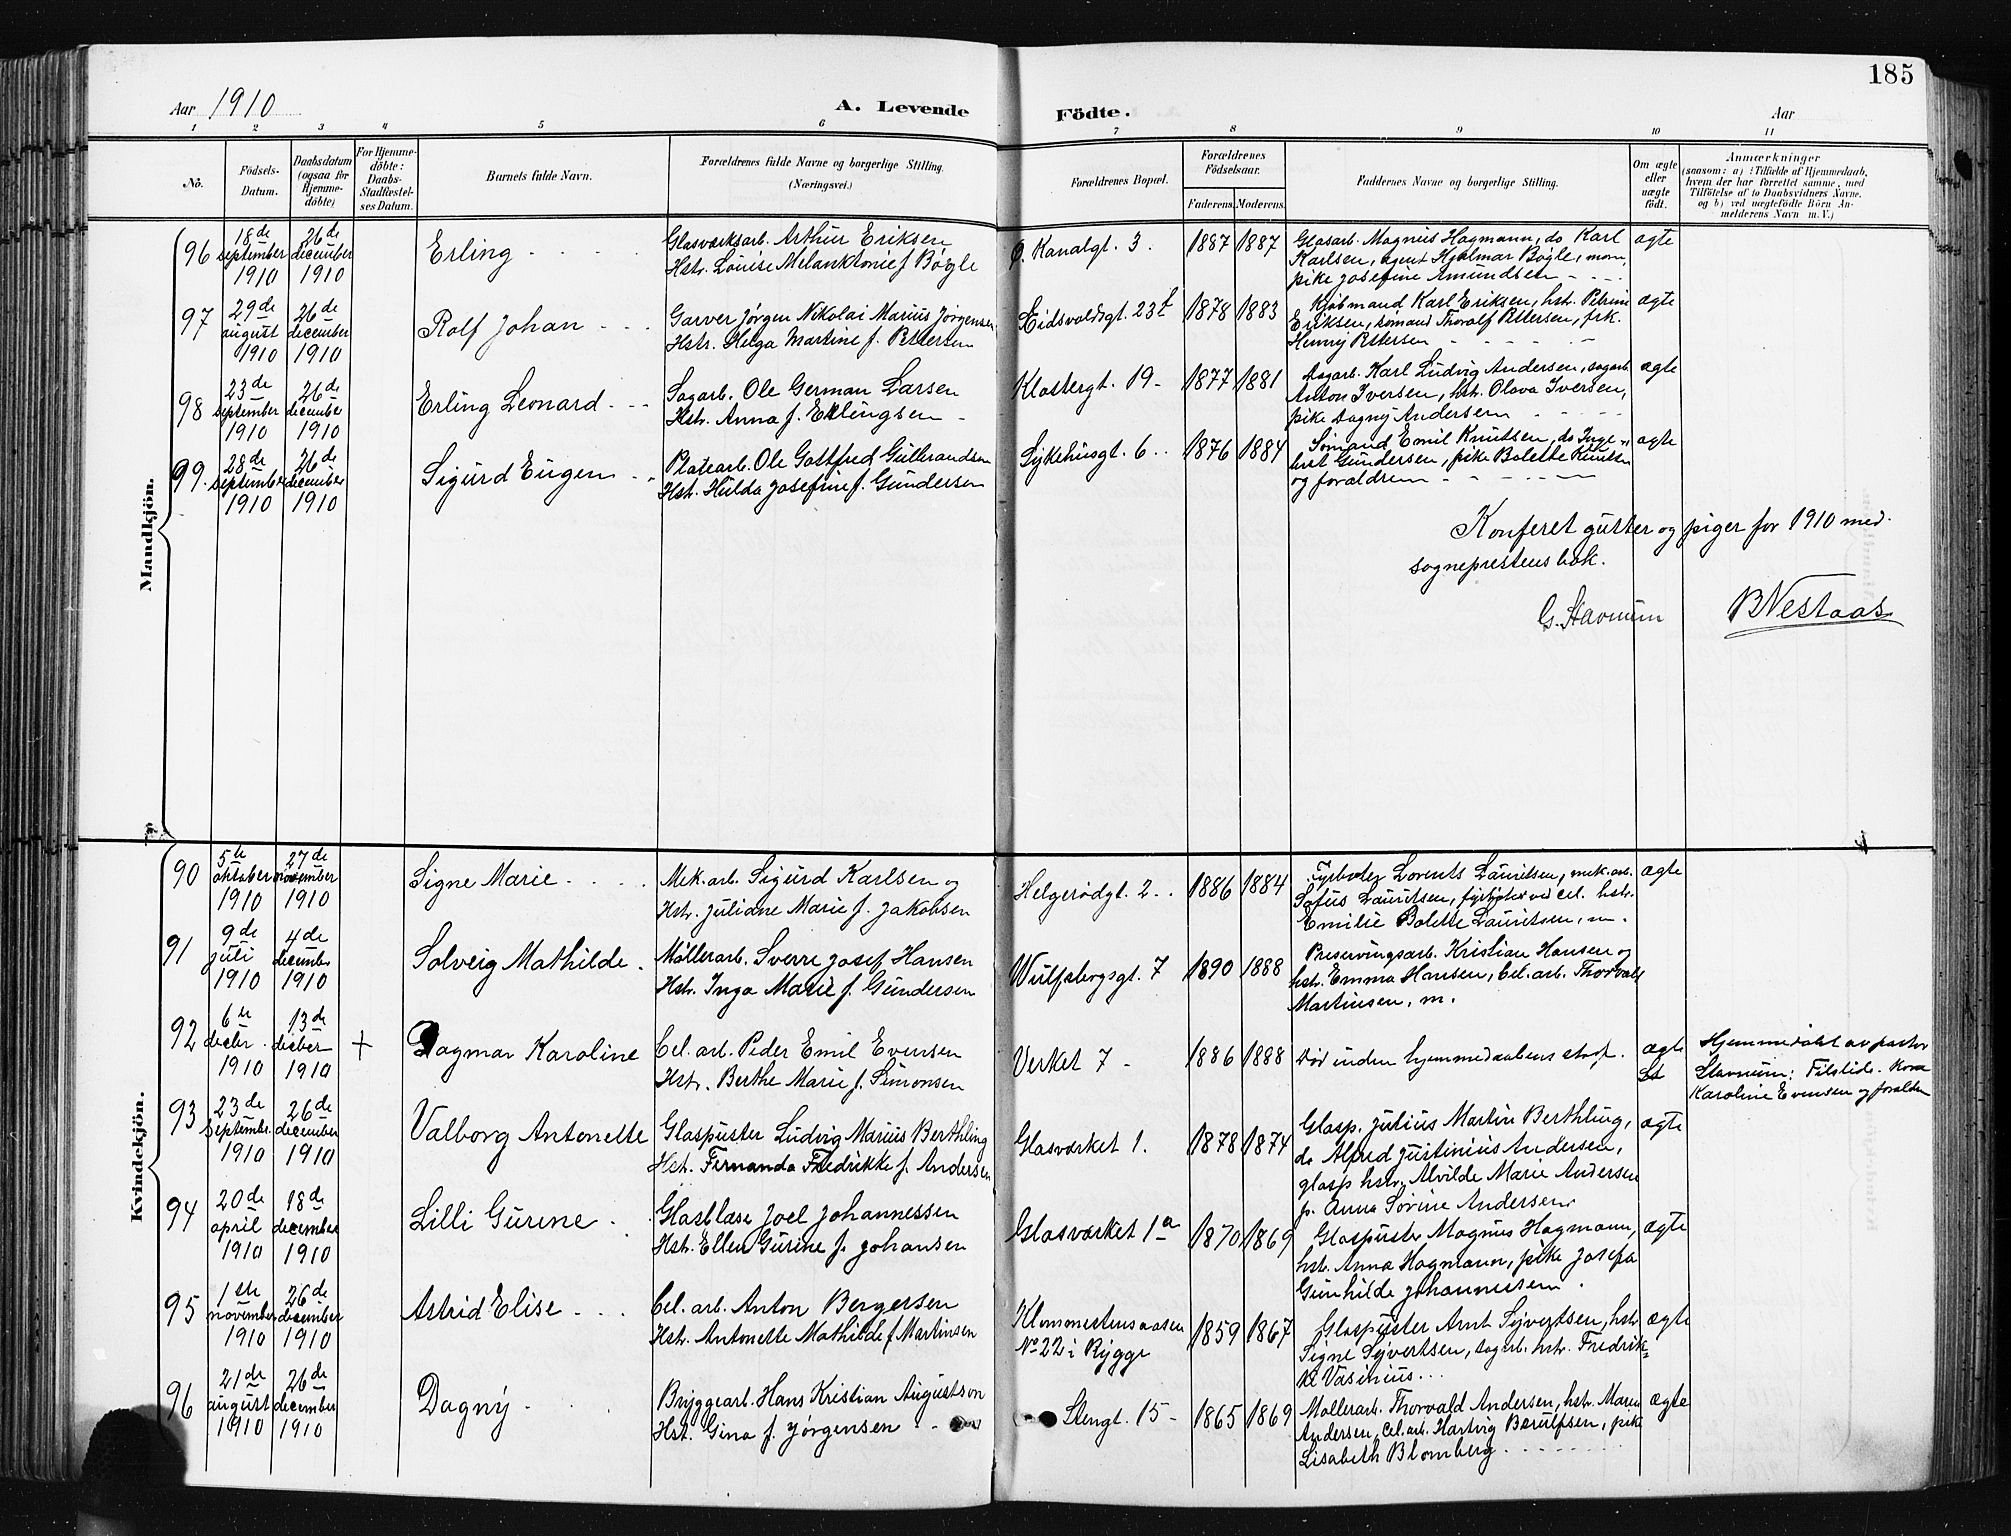 185
Aar 1910
A. Levende
Födte.
Aar
1 2 3 4 5 6 7 8 9 10 11
No.
Födsels-Datum.
Daabsdatum (ogsaa for Hjemme-döbte)
For Hjemme-döbte: Daabs-Stadfæstel-ses Datum.
Barnets fulde Navn.
Forældrenes fulde Navne og borgerlige Stilling. (Næringsvei.)
Forældrenes Bopæl.
Forældrenes Födselsaar.
Faderens. Moderens.
Faddernes Navne og borgerlige Stilling.
Om ægte eller uægte födt.
Anmærkninger
(saasom: a) i Tilfælde af Hjemmedaab,
hvem der har forrettet samme, med
Tilföielse af to Daabsvidners Navne.
og b) ved uægtefödte Börn An-
melderens Navn m. V.)
Mandkjön.
96
18de september 1910
26de december 1910
Erling
Glasværksarb. Arthur Eriksen
Hstr. Louise Melanktonie f. Bøgle
Ø. Kanalgt. 3.
1887 1887
Glasarb. Magnus Hagmann, do Karl
Karlsen, agent Hjalmar Bøgle, mom,
pike Josefine Amundsen
ægte
97
29de august 1910
26de december 1910
Rolf Johan
Garver Jørgen Nikolai Marius Jørgensen
Hstr. Helga Martine f. Pettersen
Eidsvoldsgt. 23
1878 1883
Kjøbmand Karl Eriksen, hst. Petrine
Eriksen, sømand Thoralf Pettersen, frk.
Henny Pettersen
ægte
98
23de september 1910
26de december 1910
Erling Leonard
Sagarb. Ole German Larsen
Hstr. Anna f. Ellingsen
Klostergt. 19
1877 1881
Dagarb. Karl Ludvig Andersen, sagarb.
Anton Iversen, hst. Olava Iversen,
pike Dagny Andersen
ægte
99.
28de september 1910
26de december 1910
Sigurd Eugen
Platearb. Ole Gottfred Gulbrandsen
Hst. Hulda Josefine f. Gundersen
Sykehusgt. 6
1876 1884
Sømand Emil Knutsen, do Inge-
bret Gundersen, pike Bolette Knutsen
og forældrene
ægte
Konferet gutter og piger for 1910 med
sogneprestens bok.
G. Stavnum
BNestaas
Kvindekjön.
90
5te oktober 1910
27de november 1910
Signe Marie
Mek. arb. Sigurd Karlsen og
Hst. Juliane Marie f. Jakobsen
Helgerødgt. 2
1886 1884
Fyrbøter Lorents Lauritsen, mek. arb.
Sofus Lauritsen, fyrbøter ved cel. hstr.
Emilie Bolette Lauritsen, m.
ægte
91
9de juli 1910
4de december 1910
Solveig Mathilde
Møllerarb. Sverre Josef Hansen
Hst. Inga Marie f. Gundersen
Wulfsbergsgt. 7
1890 1888
Preservingsarb. Kristian Hansen og
hst. Emma Hansen, Cel. arb. Thorvald
Martinsen, m.
92
6te decbr. 1910
13de decber 1910
+
Dagmar Karoline
Cel. arb. Peder Emil Evensen
Hstr. Berthe Marie f. Simonsen
Verket 7
1886 1888
Død inden hjemmedaabens stadf.
ægte
Hjemmedøbt av pastor
Stavnum: Tilstede. Kona
Karoline Evensen og forældre
93
23de septembr. 1910
26de december 1910
Valborg Antonette
Glaspuster Ludvig Marius Berthling
Hst. Fernanda Fredrikke f. Andersen
Glasværket 1.
1878 1874
Glasp. Julius Martin Berthling,
do Alfred Justinius Andersen,
glasp. hstr. Alvilde Marie Andersen
p. Anna Sorine Andersen
ægte
94
20de april 1910
18de december 1910
Lilli Gurine
Glasblæse Joel Johannessen
Hst. Ellen Gurine f. Johansen
Glasværket 1a
1870 1869
Glaspuster Magnus Hagmann,
hst. Anna Hagmann, pike Josefa
Gunhilde Johannessen
ægte
95
1ste november 1910
26de december 1910
Astrid Elise
Cel. arb. Anton Bergersen
Hst. Antonette Mathilde f Martinsen
Klommestensaasen
No 22 i Rygge
1859 1867
Glaspuster Arnt Syvertsen, hstr
Signe Syvertsen, dagarb. hstr. Fredrik-
ke Vasinius
ægte
96
21de august 1910
26de december 1910
Dagny
Bryggearb. Hans Kristian Augustson
Hst. Gina f. Jørgensen
Stengt. 15
1865 1869
Møllerarb. Thorvald Andersen, hst. Maren
Andersen, Cel. arb. Hartvig Berulfsen, pike
Lisabeth Blomberg
ægte